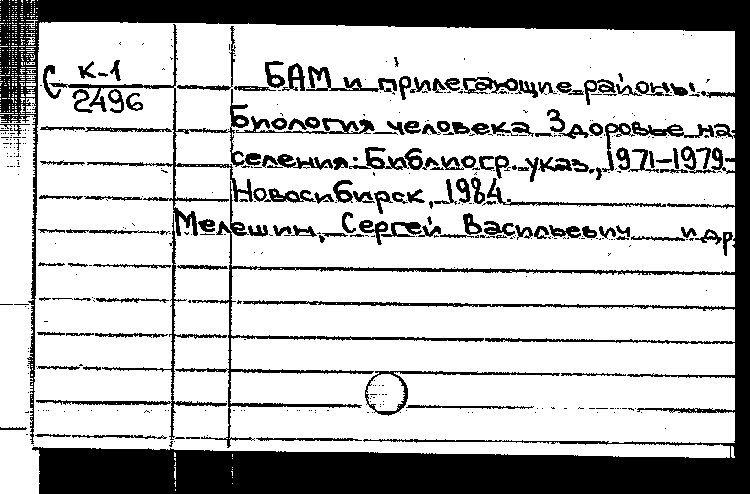 С К-1
2496
БАМ и прилегающие районы.
Биология человека. Здоровье на-
селения: Библиогр. указ., 1971-1979.-
Новосибирск, 1984.
Мелешин, Сергей Васильевич и др.